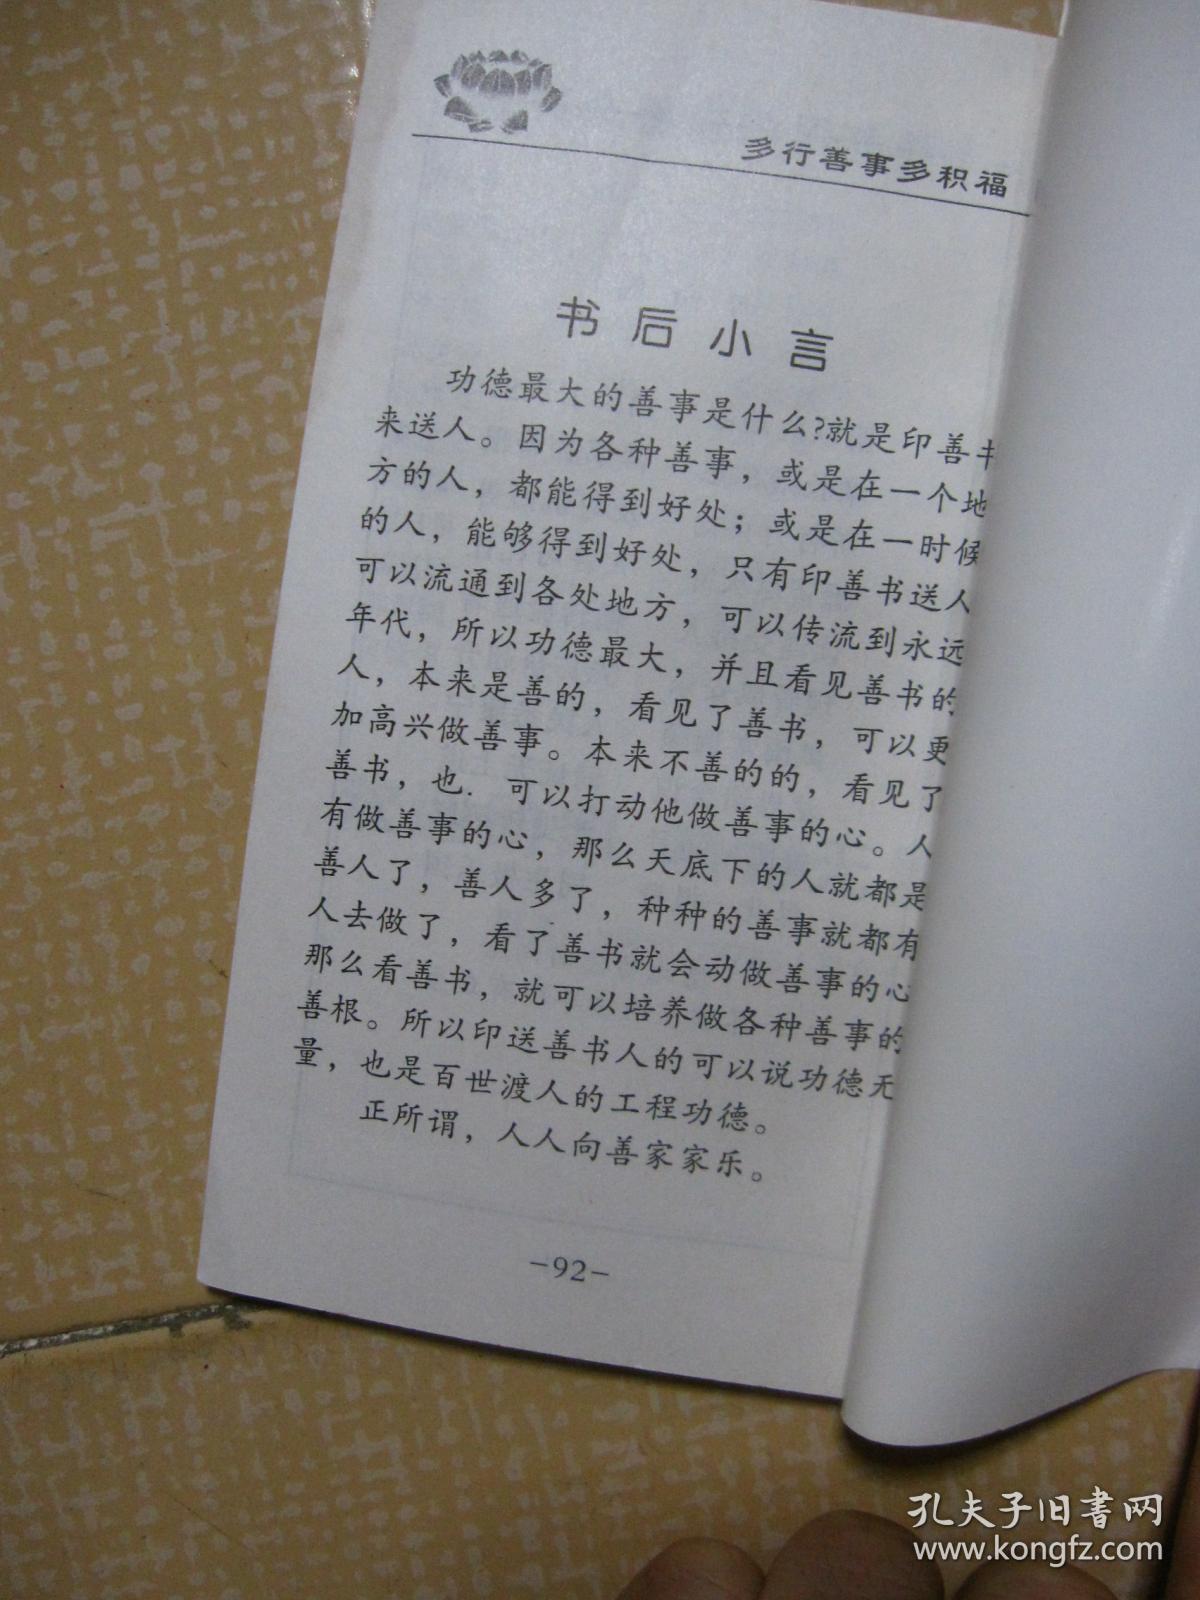 多行善事多积福
书后小言
功德最大的善事是什么?就是印善书
来送人。因为各种善事，或是在一个地
方的人，都能得到好处；或是在一时候
的人，能够得到好处，只有印善书送人
可以流通到各处地方，可以传流到永远
年代，所以功德最大，并且看见善书的
人，本来是善的，看见了善书，可以更
加高兴做善事。本来不善的的，看见了
善书，也. 可以打动他做善事的心。人
有做善事的心，那么天底下的人就都是
善人了，善人多了，种种的善事就都有
人去做了，看了善书就会动做善事的心
那么看善书，就可以培养做各种善事的
善根。所以印送善书人的可以说功德无
量，也是百世渡人的工程功德。
正所谓，人人向善家家乐。
-92-
孔夫子旧书网
www.kongfz.com